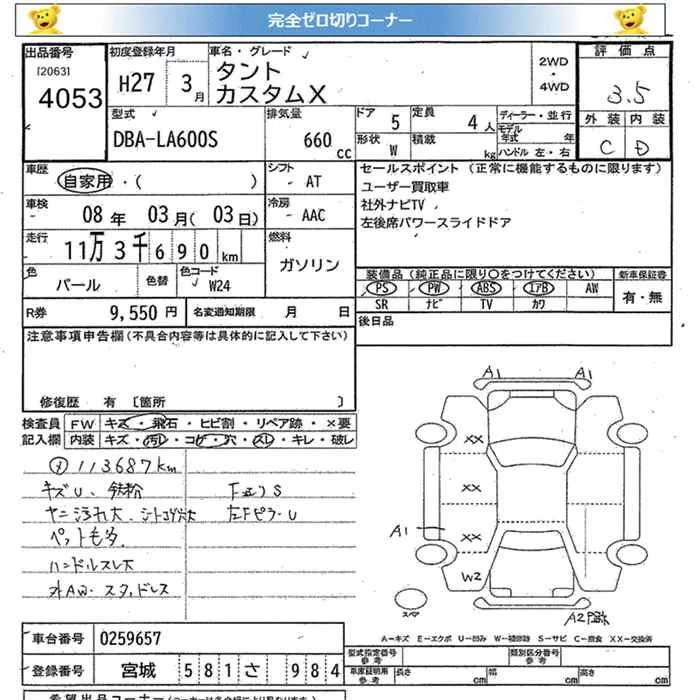 完全ゼロ切りコーナー
出品番号
[2063]
4053
初度登録年月
H27 3月
車名・グレード
タント
カスタムX
2WD
・
4WD
評価点
3.5
外装 内装
C D
型式
DBA-LA600S
排気量
660 cc
ドア 5
定員 4人
形状 W
積載 kg
ディーラー・並行
モデル年式 年
ハンドル 左・右
車歴
自家用・( )
シフト
AT
車検
08年 03月(03日)
冷房
AAC
走行
11万3千690km
燃料
ガソリン
色
パール
色替
色コード
W24
R券 9,550円
名変通知期限 月 日
セールスポイント (正常に機能するものに限ります)
ユーザー買取車
社外ナビTV
左後席パワースライドドア
装備品(純正品に限り○をつけてください)
新車保証書
PS PW ABS エアB AW
SR ナビ TV カワ
有・無
後日品
注意事項申告欄(不具合内容等は具体的に記入して下さい)
修復歴 有〔箇所 〕
検査員
記入欄
FW キズ・飛石・ヒビ割・リペア跡・×要
内装 キズ・汚レ・コゲ・穴・スレ・キレ・破レ
メ 113687km
キズU、鉄粉
ヤニ汚れ大、シートコゲ穴大
ペット毛多
ハンドルスレ大
外AW・スタッドレス
左Fピラ-U
A1 A1
XX
XX
XX
A1
W2
スペア
A2
A-キズ E-エクボ U-凹み W-補修跡 S-サビ C-腐食 XX-交換済
車台番号 0259657
登録番号 宮城 581 さ 984
型式指定番号
参考
類別区分番号
参考
車庫証明用
参考
長さ cm 幅 cm 高さ cm
希望出品コーナー